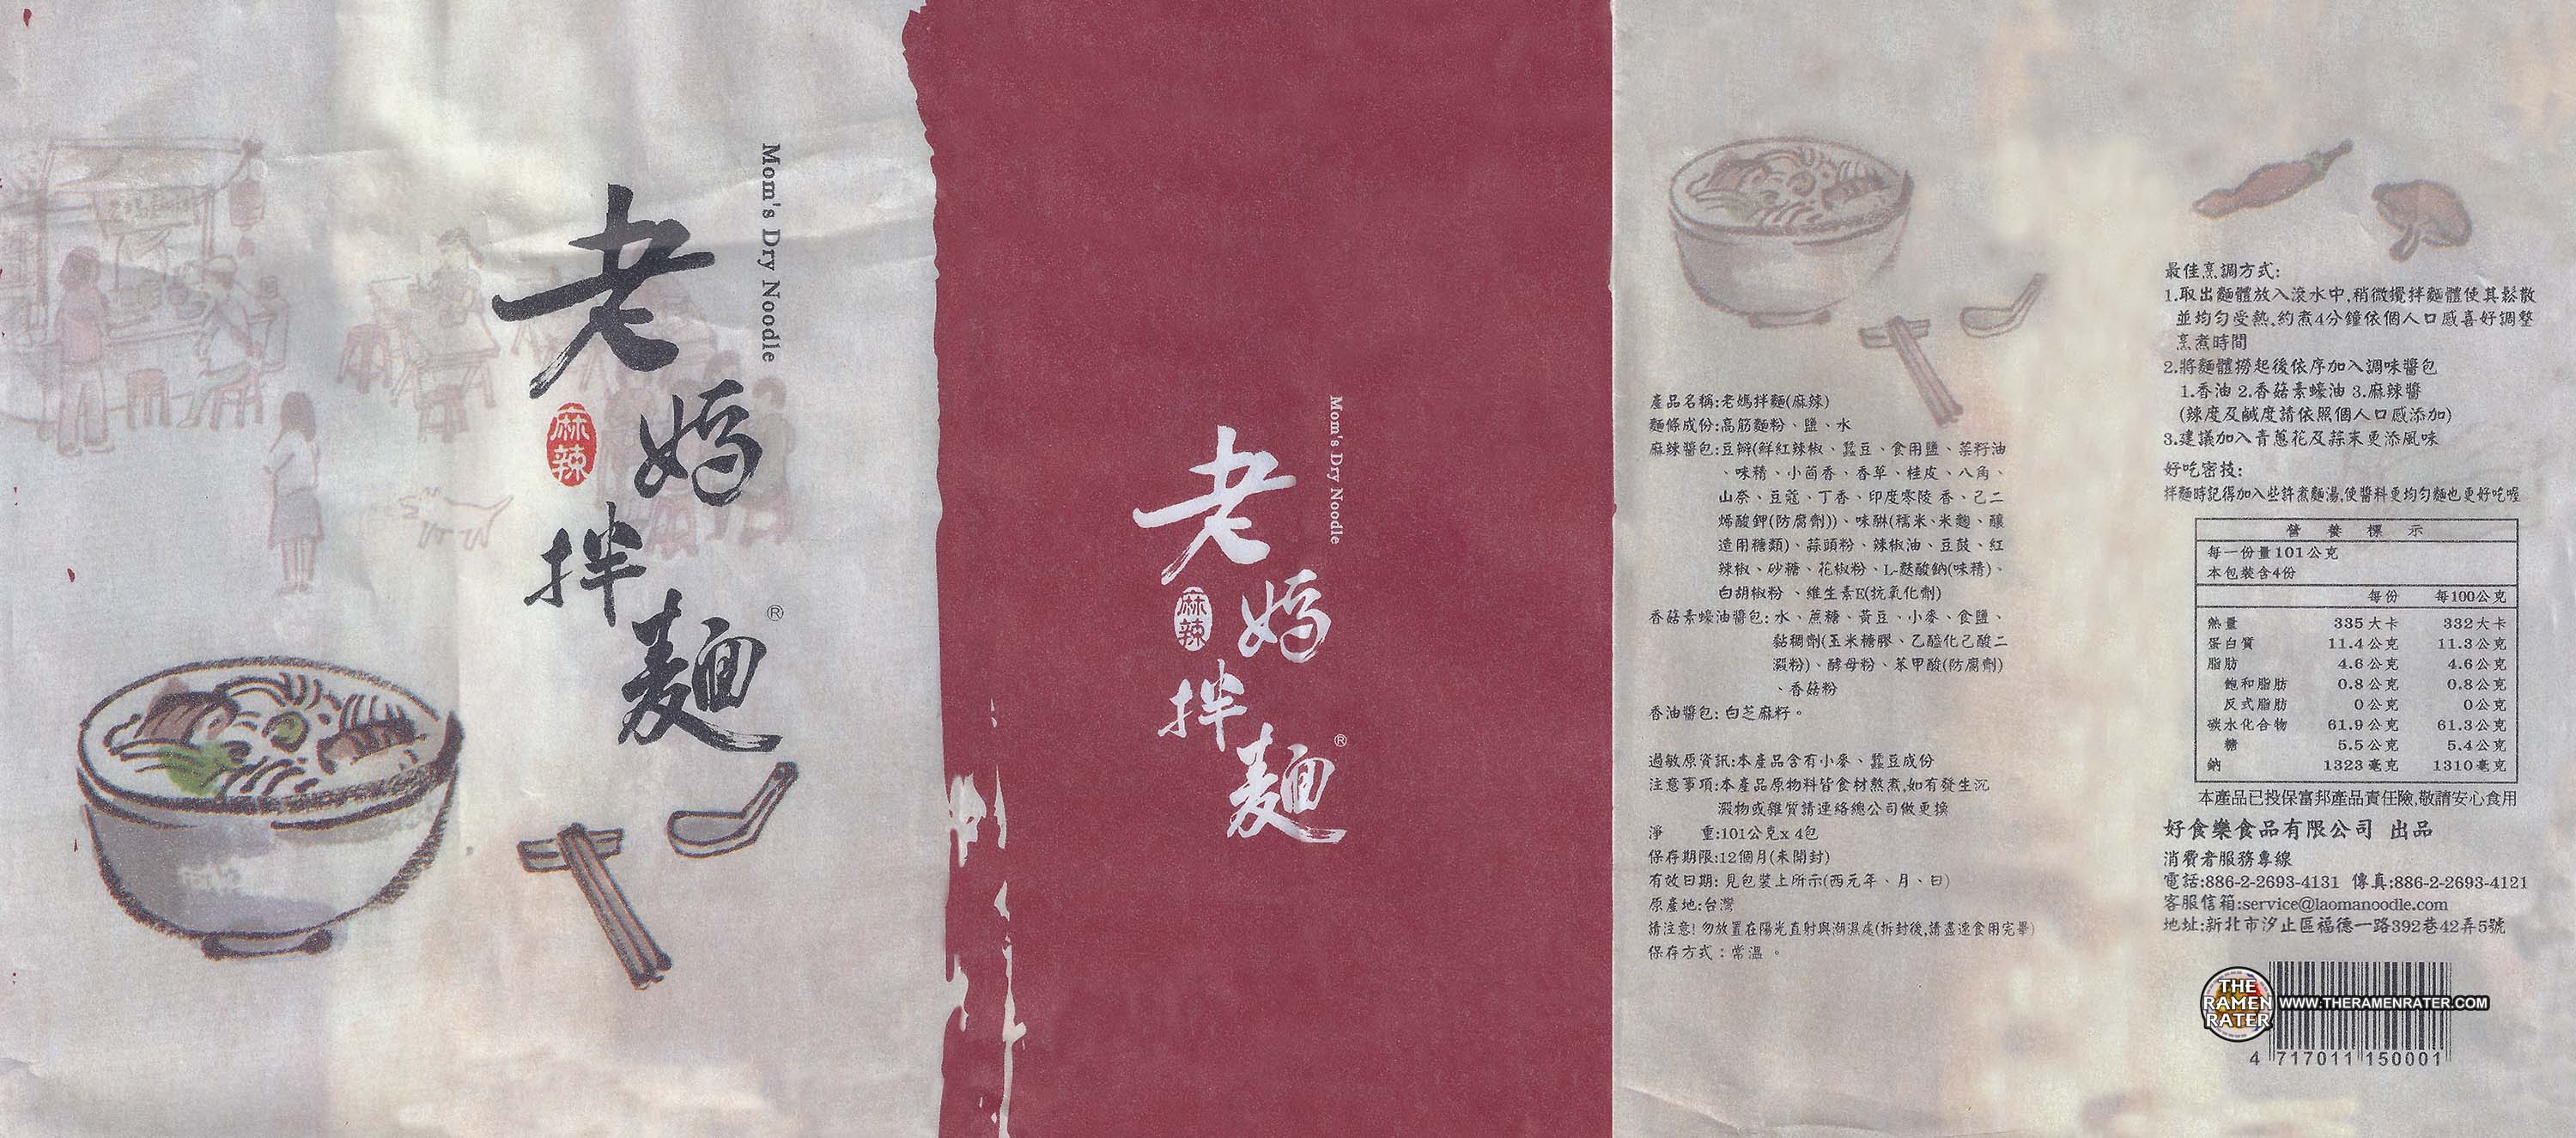 Mom's Dry Noodle
老媽拌麵®
麻辣
Mom's Dry Noodle
老媽拌麵®
麻辣
產品名稱:老媽拌麵(麻辣)
麵條成份:高筋麵粉、鹽、水
麻辣醬包:豆瓣(鮮紅辣椒、蠶豆、食用鹽、菜籽油
、味精、小茴香、香草、桂皮、八角、
山奈、豆蔻、丁香、印度零陵 香、己二
烯酸鉀(防腐劑))、味醂(糯米、米麴、釀
造用糖類)、蒜頭粉、辣椒油、豆鼓、紅
辣椒、砂糖、花椒粉、L-麩酸鈉(味精)、
白胡椒粉 、維生素E(抗氧化劑)
香菇素蠔油醬包: 水、蔗糖、黃豆、小麥、食鹽、
黏稠劑(玉米糖膠、乙醯化己酸二
澱粉)、酵母粉、苯甲酸(防腐劑)
、香菇粉
香油醬包: 白芝麻籽。
過敏原資訊:本產品含有小麥、蠶豆成份
注意事項:本產品原物料皆食材熬煮,如有發生沉
澱物或雜質請連絡總公司做更換
淨 重:101公克x 4包
保存期限:12個月(未開封)
有效日期: 見包裝上所示(西元年、月、日)
原產地:台灣
請注意! 勿放置在陽光直射與潮濕處(拆封後,請盡速食用完畢)
保存方式:常溫 。
最佳烹調方式:
1.取出麵體放入滾水中,稍微攪拌麵體使其鬆散
並均勻受熱,約煮4分鐘依個人口感喜好調整
烹煮時間
2.將麵體撈起後依序加入調味醬包
1.香油 2.香菇素蠔油 3.麻辣醬
(辣度及鹹度請依照個人口感添加)
3.建議加入青蔥花及蒜末更添風味
好吃密技:
拌麵時記得加入些許煮麵湯,使醬料更均勻麵也更好吃喔
營 養 標 示
每一份量101公克
本包裝含4份
每份 每100公克
熱量 335大卡 332大卡
蛋白質 11.4公克 11.3公克
脂肪 4.6公克 4.6公克
飽和脂肪 0.8公克 0.8公克
反式脂肪 0公克 0公克
碳水化合物 61.9公克 61.3公克
糖 5.5公克 5.4公克
鈉 1323毫克 1310毫克
本產品已投保富邦產品責任險,敬請安心食用
好食樂食品有限公司 出品
消費者服務專線
電話:886-2-2693-4131 傳真:886-2-2693-4121
客服信箱:service@laomanoodle.com
地址:新北市汐止區福德一路392巷42弄5號
THE RAMEN RATER
WWW.THERAMENRATER.COM
4 717011 150001